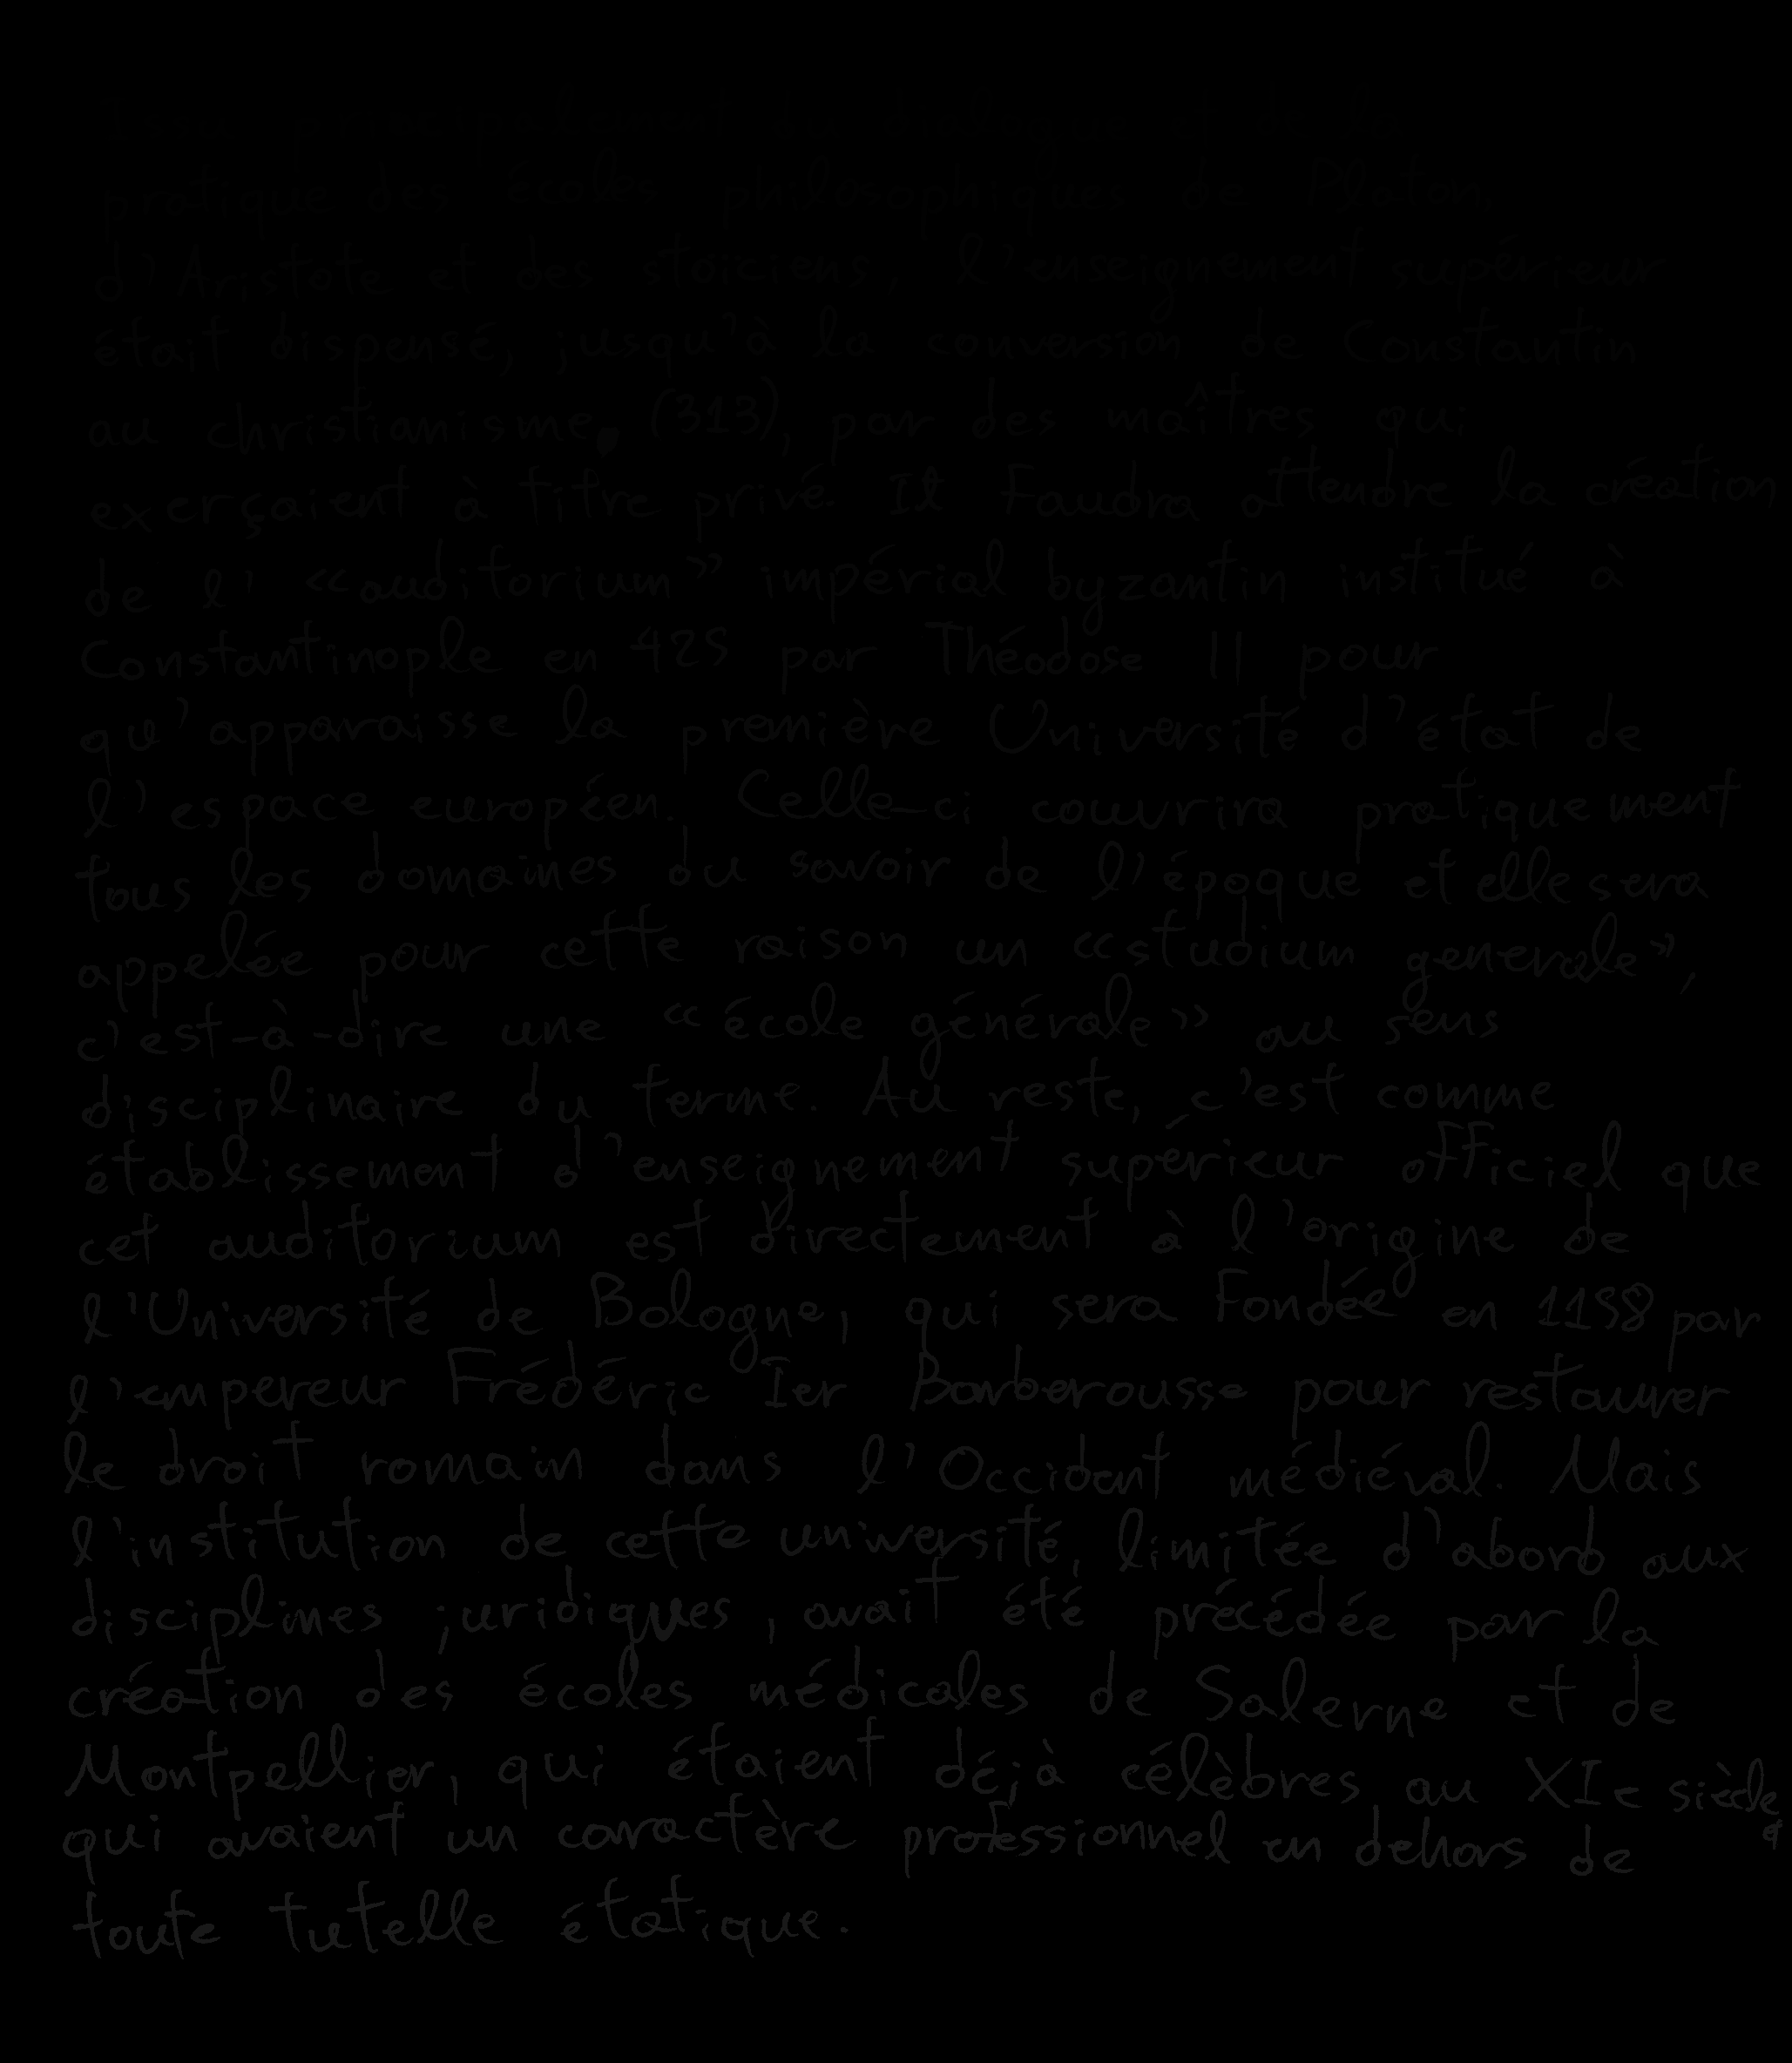 pratique des écoles philosophiques de Platon,
d'Aristote et des stoïciens, l'enseignement supérieur
était dispensé, jusqu'à la conversion de Constantin
au christianisme (313), par des maîtres qui
exerçaient à titre privé. Il Faudra attendre la création
de l' «auditorium» impérial byzantin institué à
Constantinople en 425 par Théodose II pour
qu'apparaisse la première Université d'état de
l'espace européen. Celle-ci couvrira pratiquement
tous les domaines du savoir de l'époque et elle sera
appelée pour cette raison un «studium generale»,
c'est-à-dire une «école générale» au sens
disciplinaire du terme. Au reste, c'est comme
établissement d'enseignement supérieur officiel que
cet auditorium est directement à l'origine de
l'Université de Bologne, qui sera Fondée en 1158 par
l'empereur Frédéric Ier Barberousse pour restaurer
le droit romain dans l'Occident médiéval. Mais
l'institution de cette université, limitée d'abord aux
disciplines juridiques, avait été précédée par la
création des écoles médicales de Salerne et de
Montpellier, qui étaient déjà célèbres au XIe siècle et
qui avaient un caractère professionnel en dehors de
toute tutelle étatique.